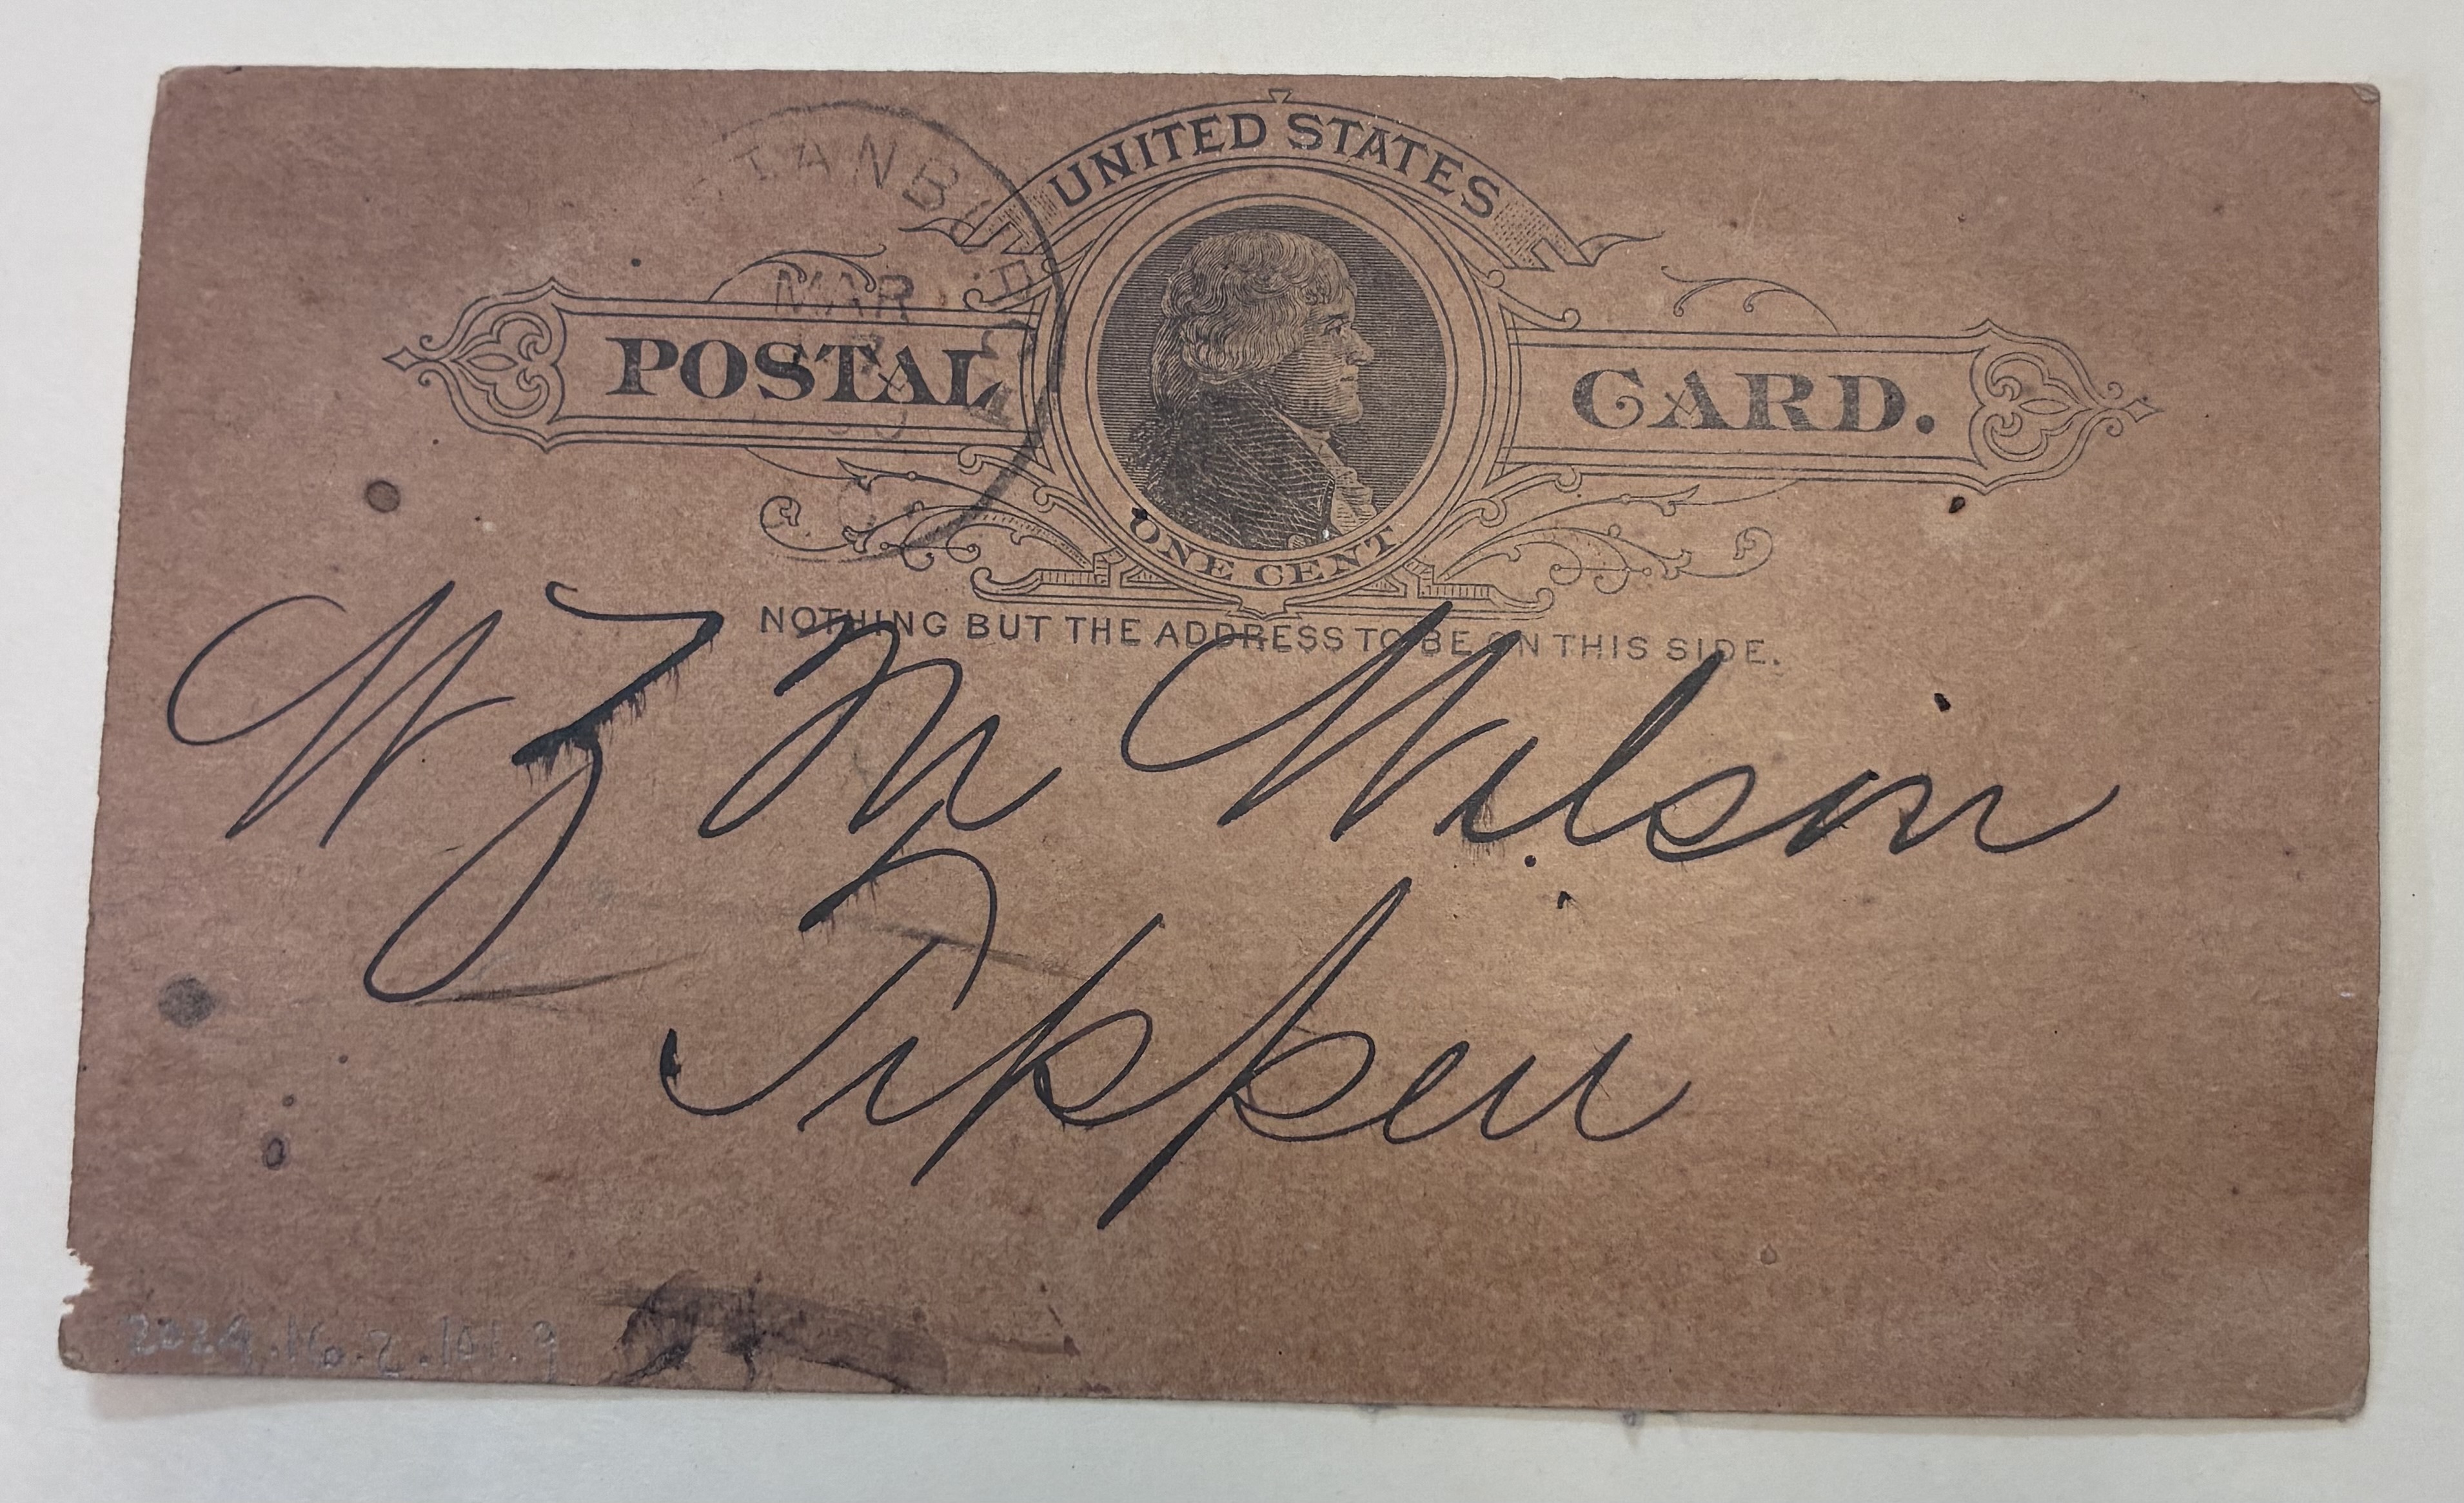 UNITED STATES
POSTAL CARD.
ONE CENT
NOTHING BUT THE ADDRESS TO BE ON THIS SIDE.
MAR
W Z M Wilson
Tippeu
2024.16.2.101.9